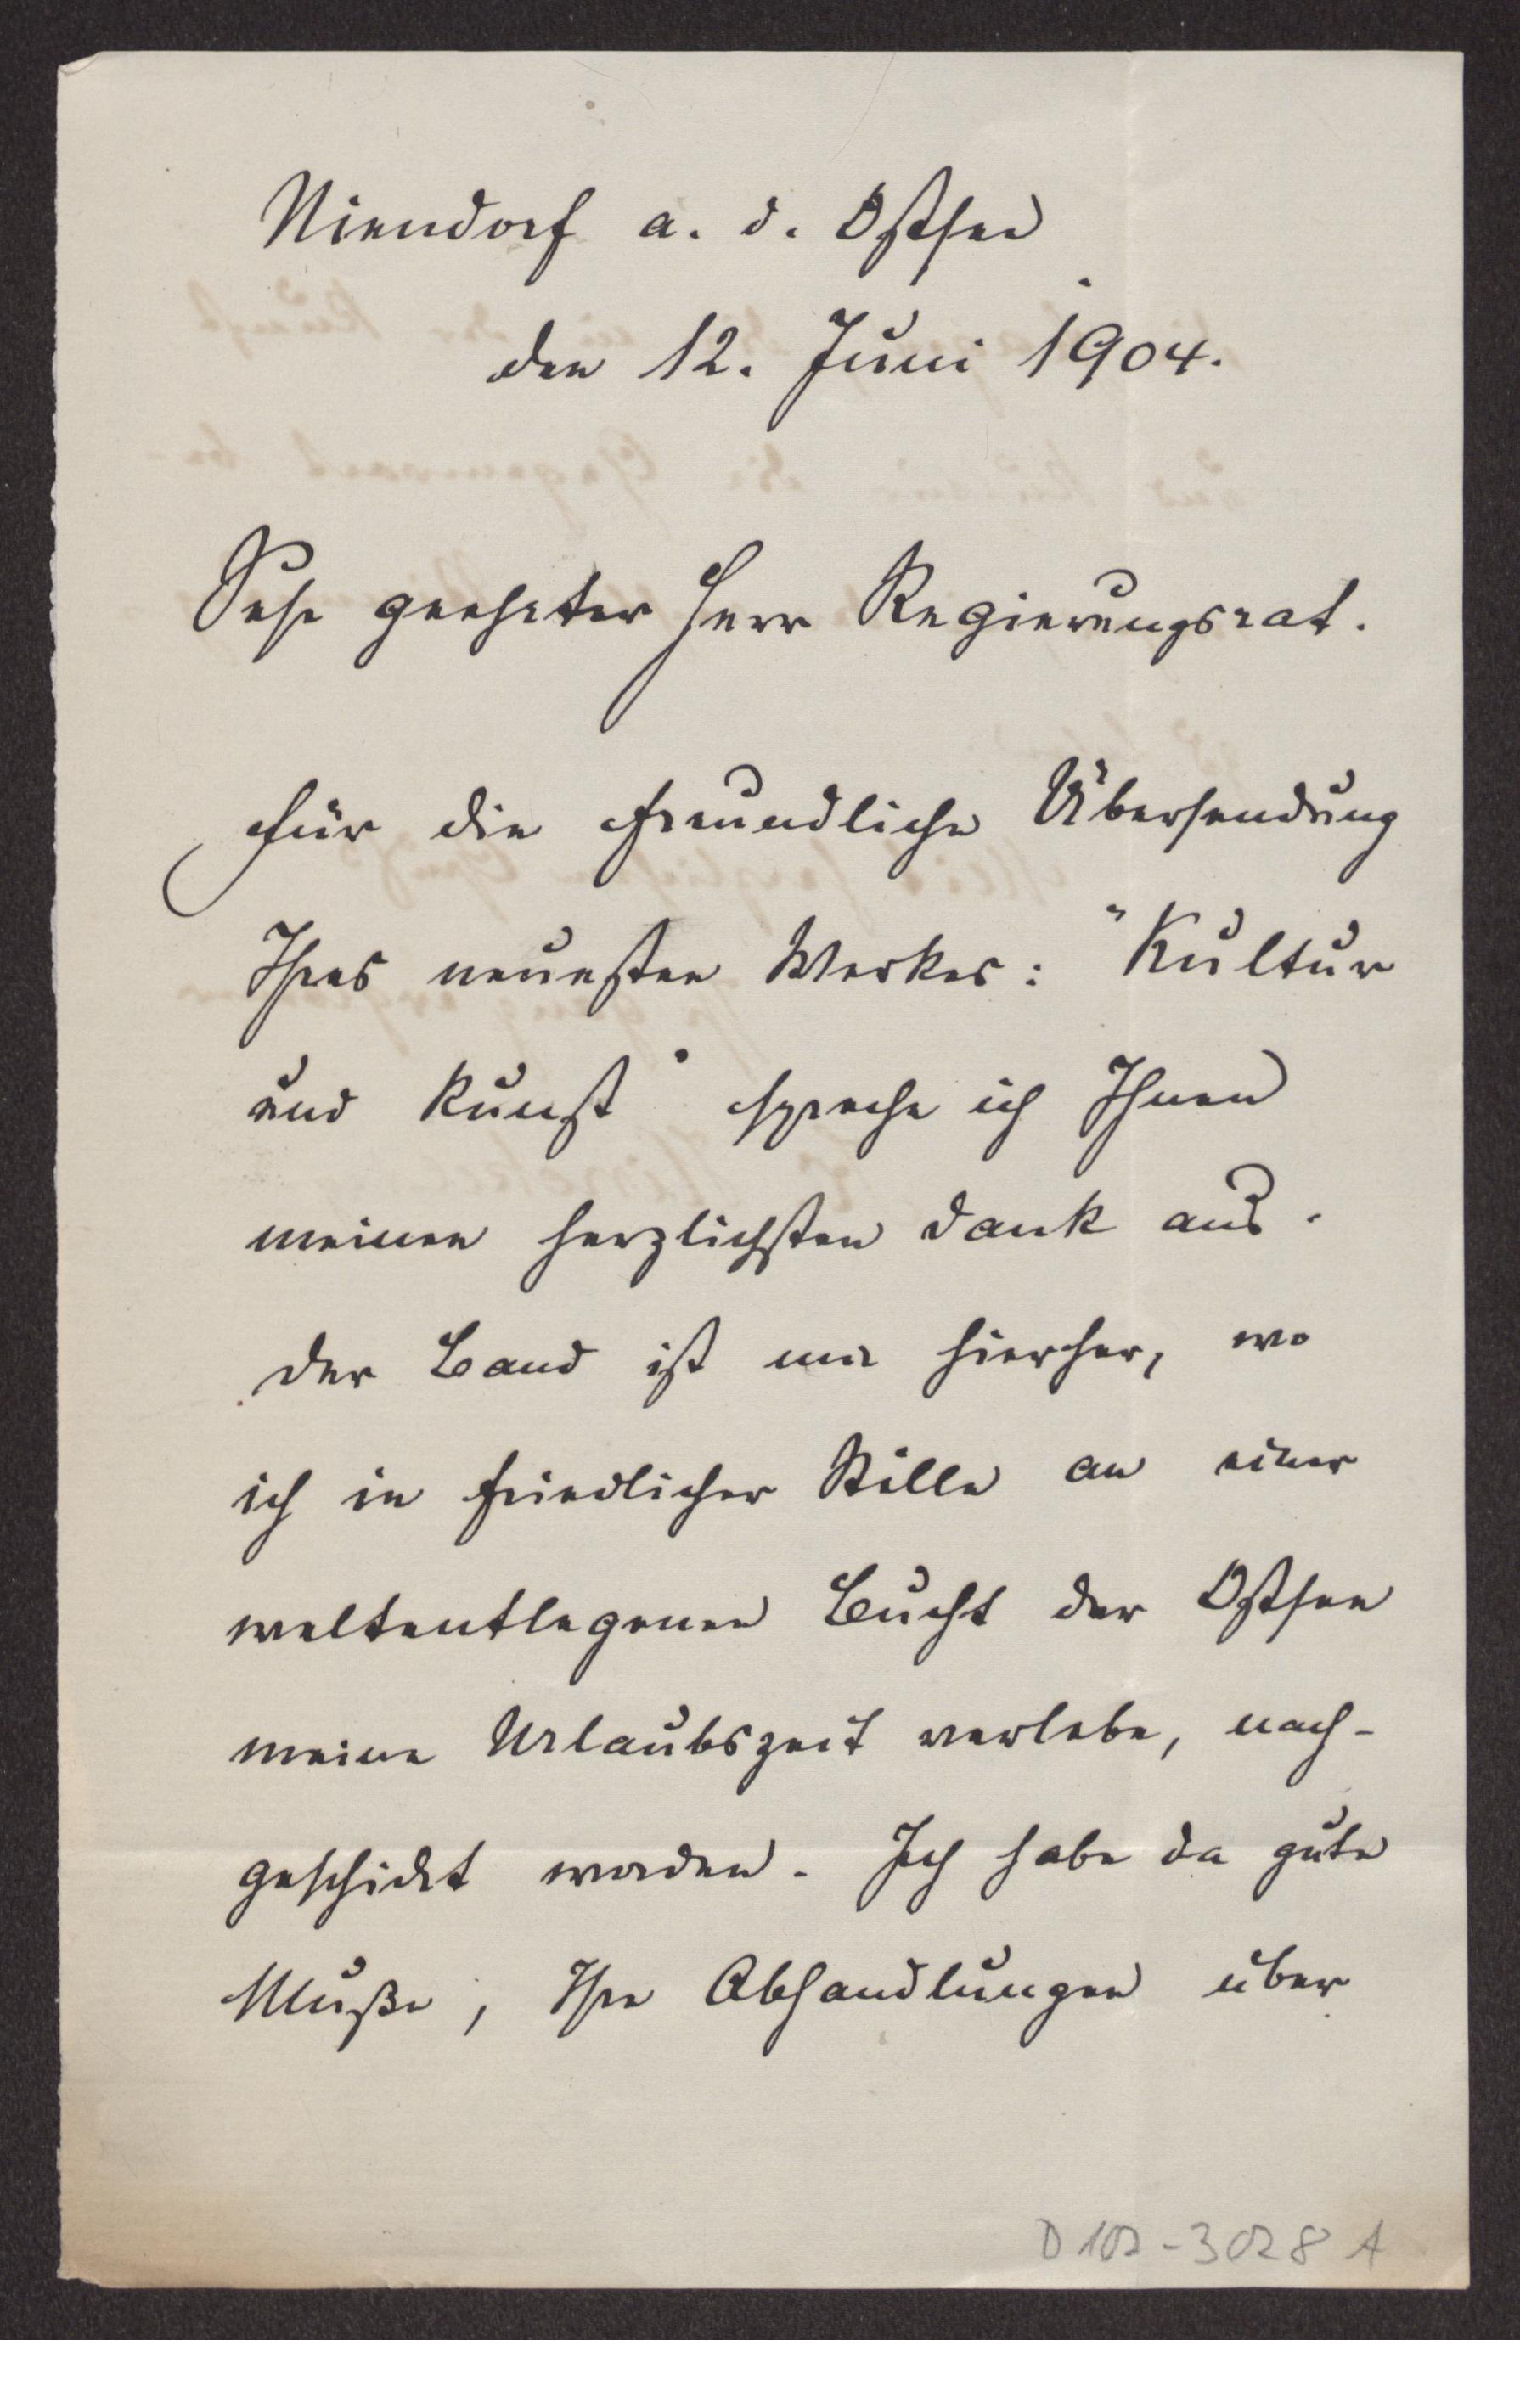 Niendorf a. d. Ostsee
den 12. Juni 1904.
Sehr geehrter Herr Regierungsrat.
für die freundliche Übersendung
Ihres neuesten Werkes: "Kultur
und Kunst" spreche ich Ihnen
meinen herzlichsten Dank aus.
Der Band ist mir hierher, wo
ich in friedlicher Stille an einer
weltentlegenen Bucht der Ostsee
meine Urlaubszeit verlebe, nach-
geschickt worden. Ich habe da gute
Muße, Ihre Abhandlungen über
D 102-3028 A